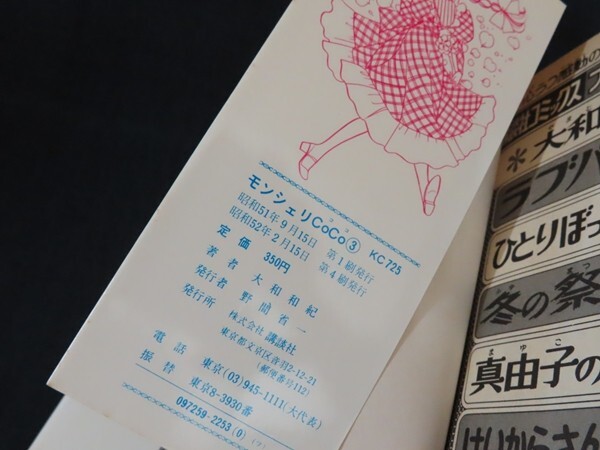 モンシェリCoCo③ KC725
昭和51年9月15日 第1刷発行
昭和52年2月15日 第4刷発行
定価 350円
著者 大和和紀
発行者 野間省一
発行所 株式会社 講談社
東京都文京区音羽2-12-21
(郵便番号112)
電話 東京(03)945-1111(大代表)
振替 東京8-3930番
097259-2253(0)
コミックス
*大和
ラブパ
ひとりぼっ
冬の祭
真由子の
はいからさん